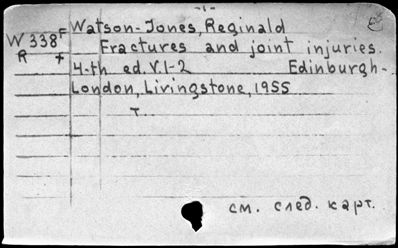 -1-
Watson-Jones, Reginald
W 338 F Fractures and joint injuries.
R + 4-th ed. V. 1-2 Edinburgh-
London, Livingstone, 1955
T.
см. след. карт.